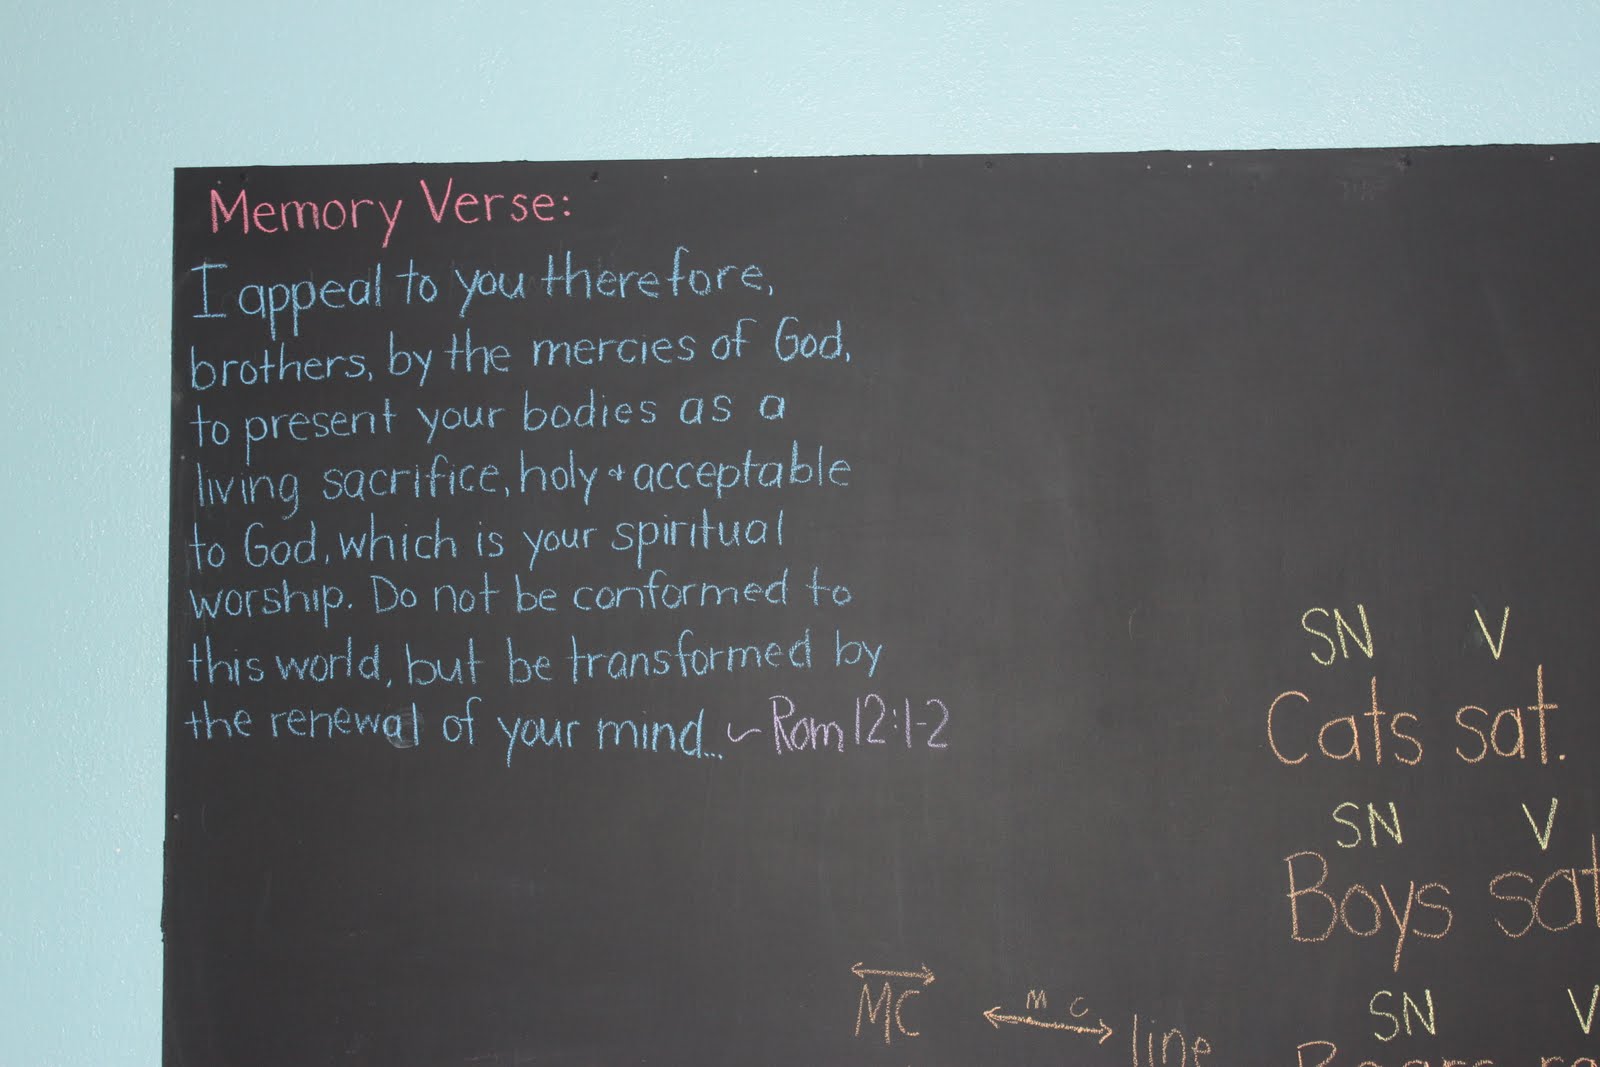 Memory Verse:
I appeal to you therefore,
brothers, by the mercies of God,
to present your bodies as a
living sacrifice, holy & acceptable
to God, which is your spiritual
worship. Do not be conformed to
this world, but be transformed by
the renewal of your mind... ~ Rom 12:1-2
SN V
Cats sat.
SN V
Boys sat
MC
M C
line
SN V